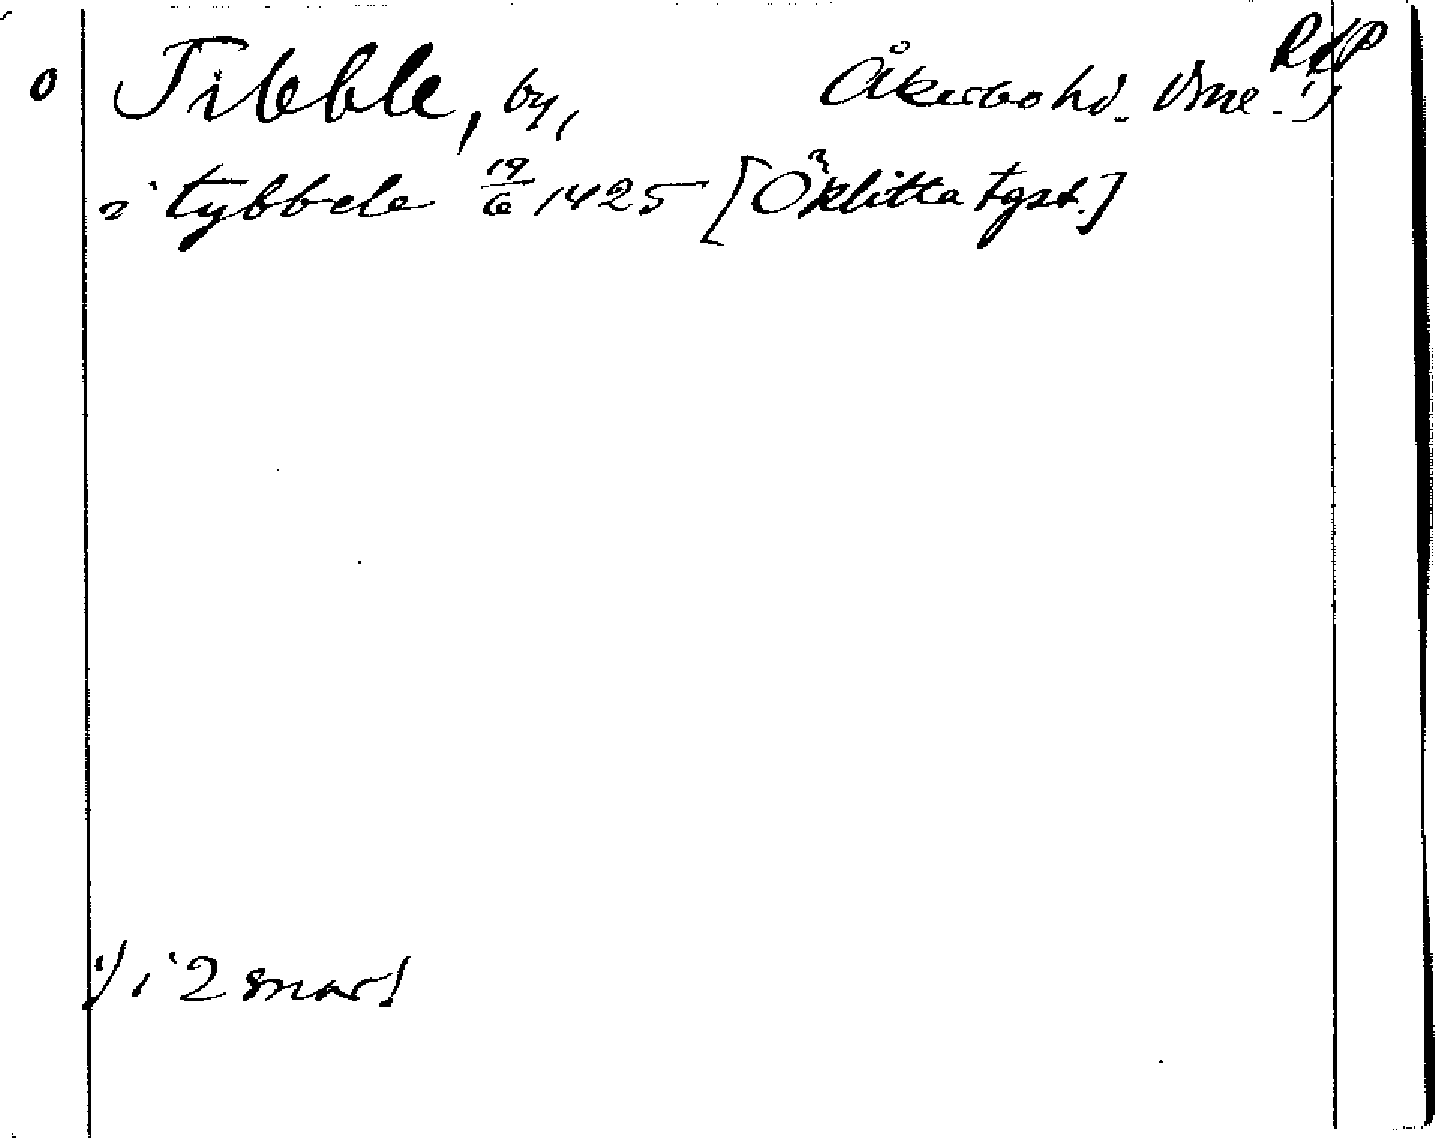 o Tibble, by, Åkerbo hd. Vme. 1) RAP
i tybbele 19/6 1425 [Öklitta tgst.]
1) i 2 snart